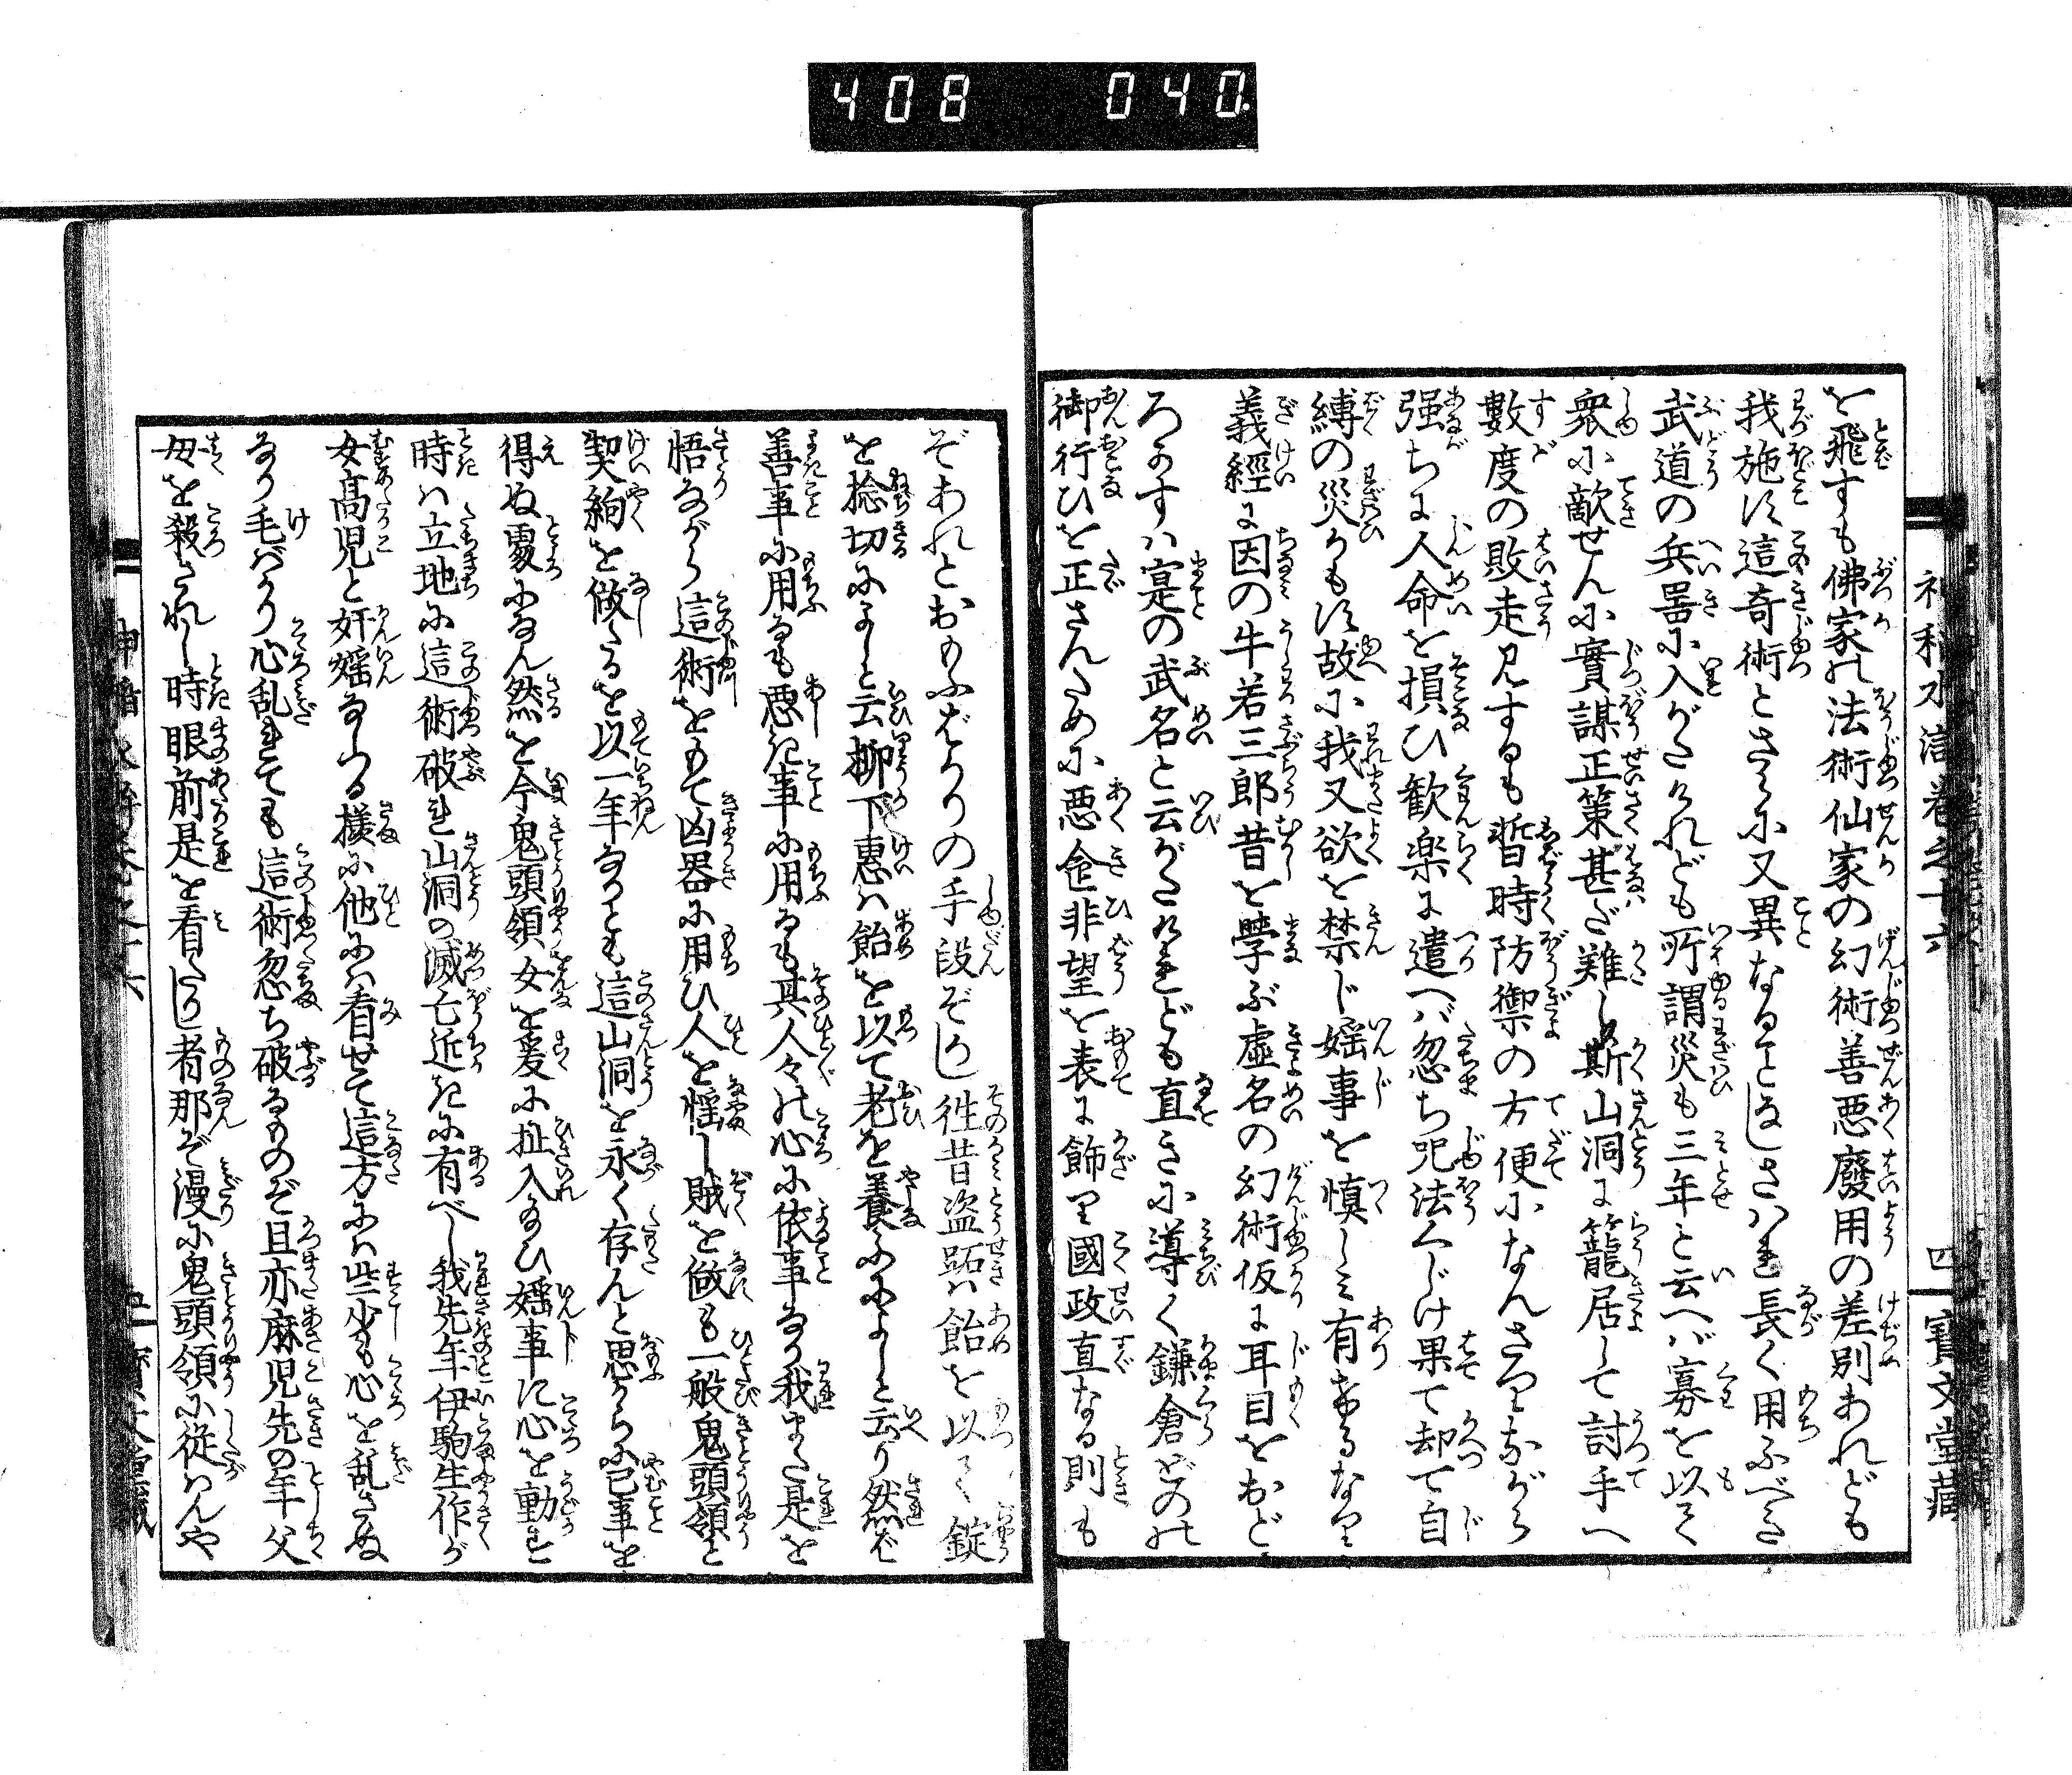 408 040
を飛すも佛家の法術仙家の幻術善悪廢用の差別あれども
我施す這奇術とさらに又異なることなしされば長く用ふべき
武道の兵器に入がたけれども所謂災も三年と云へば寡を以て
衆に敵せんに實謀正策甚だ難し斯山洞に籠居して討手へ
數度の敗走見するも暫時防禦の方便になんさりながら
强ちに人命を損ひ歓楽に遣へば忽ち咒法くじけ果て却て自
縛の災かもす故に我又欲を禁じ婬事を慎しみ有けるなり
義經に因の牛若三郎昔を學ぶ虚名の幻術仮に耳目をおど
ろかすは寔の武名と云がたけれども直きに導く鎌倉どのの
御行ひを正さんために悪企非望を表に飾り國政直なる則も
四 寶文堂藏
ぞあれとおもふばかりの手段ぞかし徃昔盗跖は飴を以て錠
を捻切によしと云柳下惠は飴を以て老を養ふによしと云り然ば
善事に用るも悪き事に用るも其人々の心に依事なり我また是を
悟ながら這術をもて凶器に用ひ人を惱し賊を做も一般鬼頭領と
契約を做たるを以一年なりとも這山洞を永く存んと思ふからに已事を
得ぬ處になん然を今鬼頭領女を爰に扯入給ひ婬事に心を動す
時は立地に這術破れ山洞の滅亡近きに有べし我先年伊駒生作が
女髙児と奸婬なしつる様に他には看せて這方には些少も心を乱さぬ
なり毛ばかり心乱れても這術忽ち破るものぞ且亦麻児先の年父
母を殺されし時眼前是を看たりし者那ぞ漫に鬼頭領に従はんや